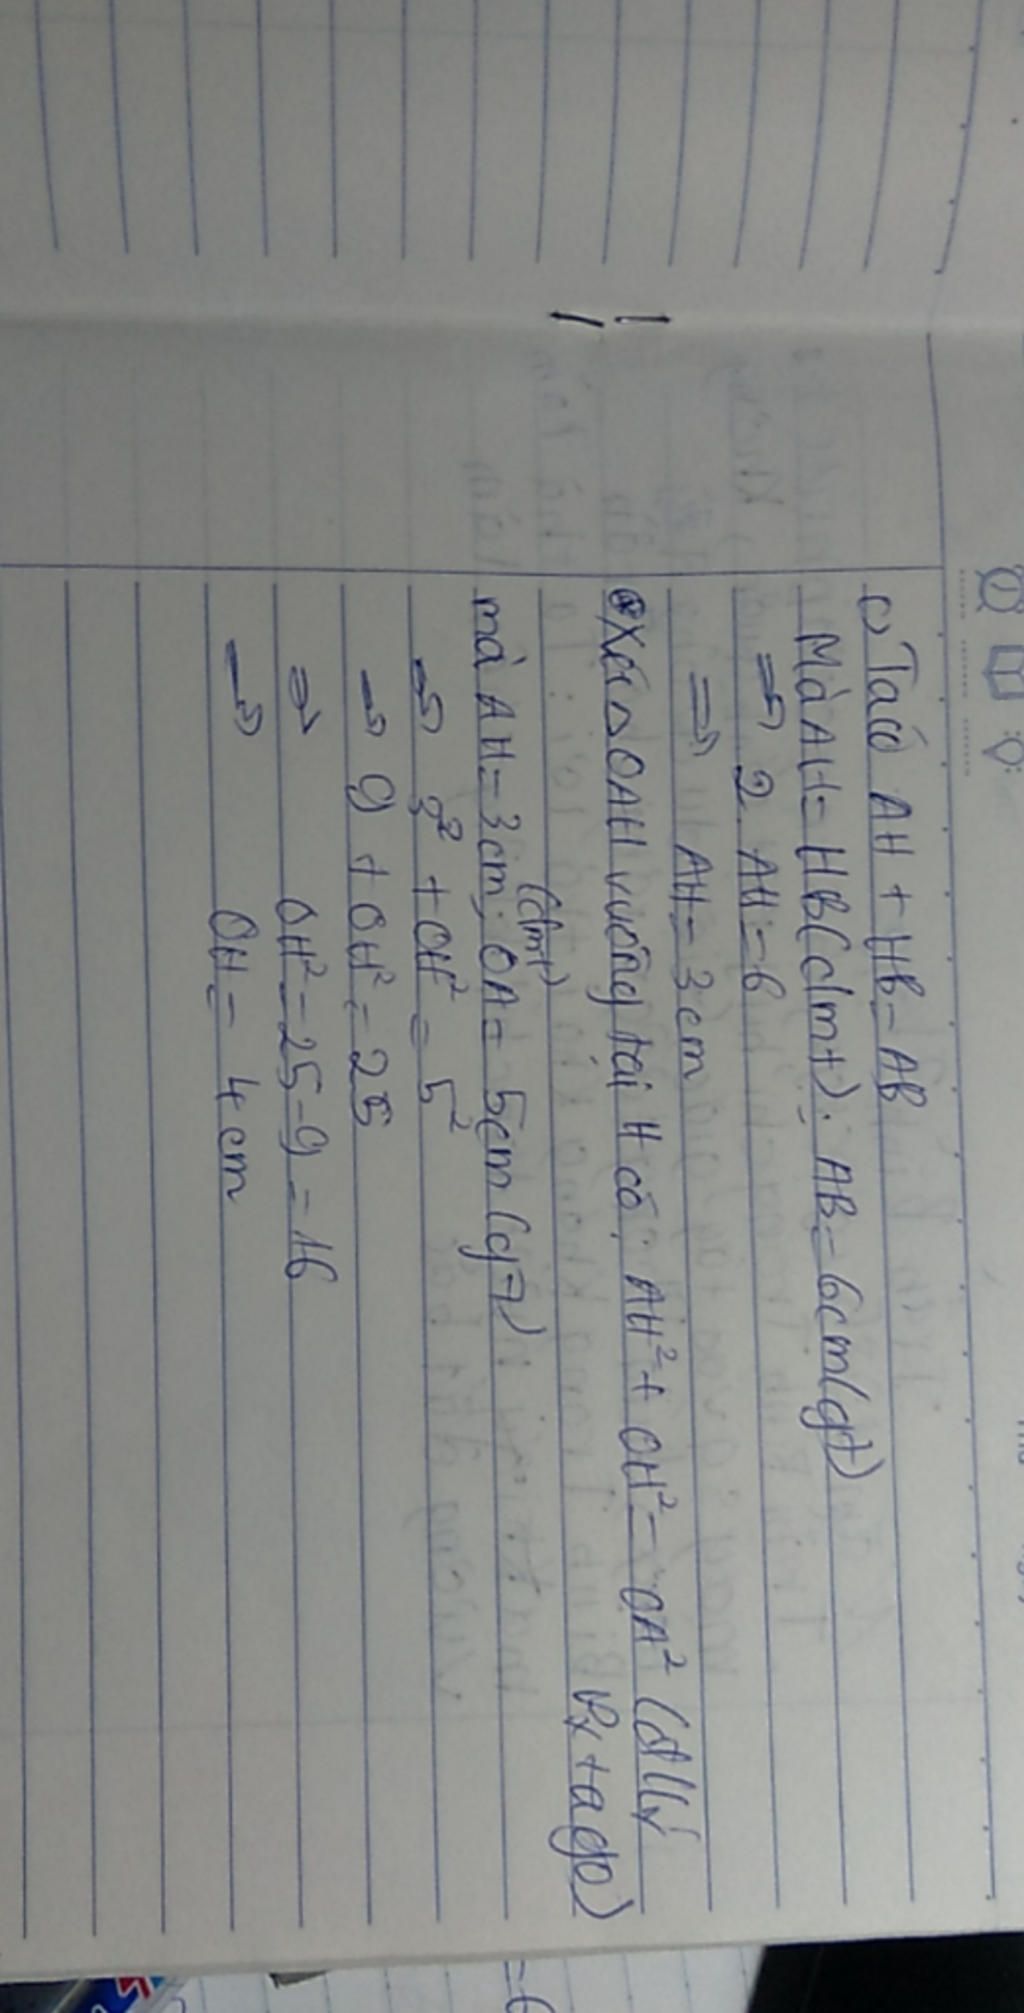 c) Ta có AH + HB = AB
Mà AH = HB (cmt); AB = 6cm (gt)
⇒ 2. AH = 6
⇒ AH = 3cm
* Xét Δ OAH vuông tại H có: AH² + OH² = OA² (đlý
Pytago)
(cmt)
mà AH = 3cm; OA = 5cm (gt)
→ 3² + OH² = 5²
→ 9 + OH² = 25
⇒ OH² = 25 - 9 = 16
→ OH = 4cm